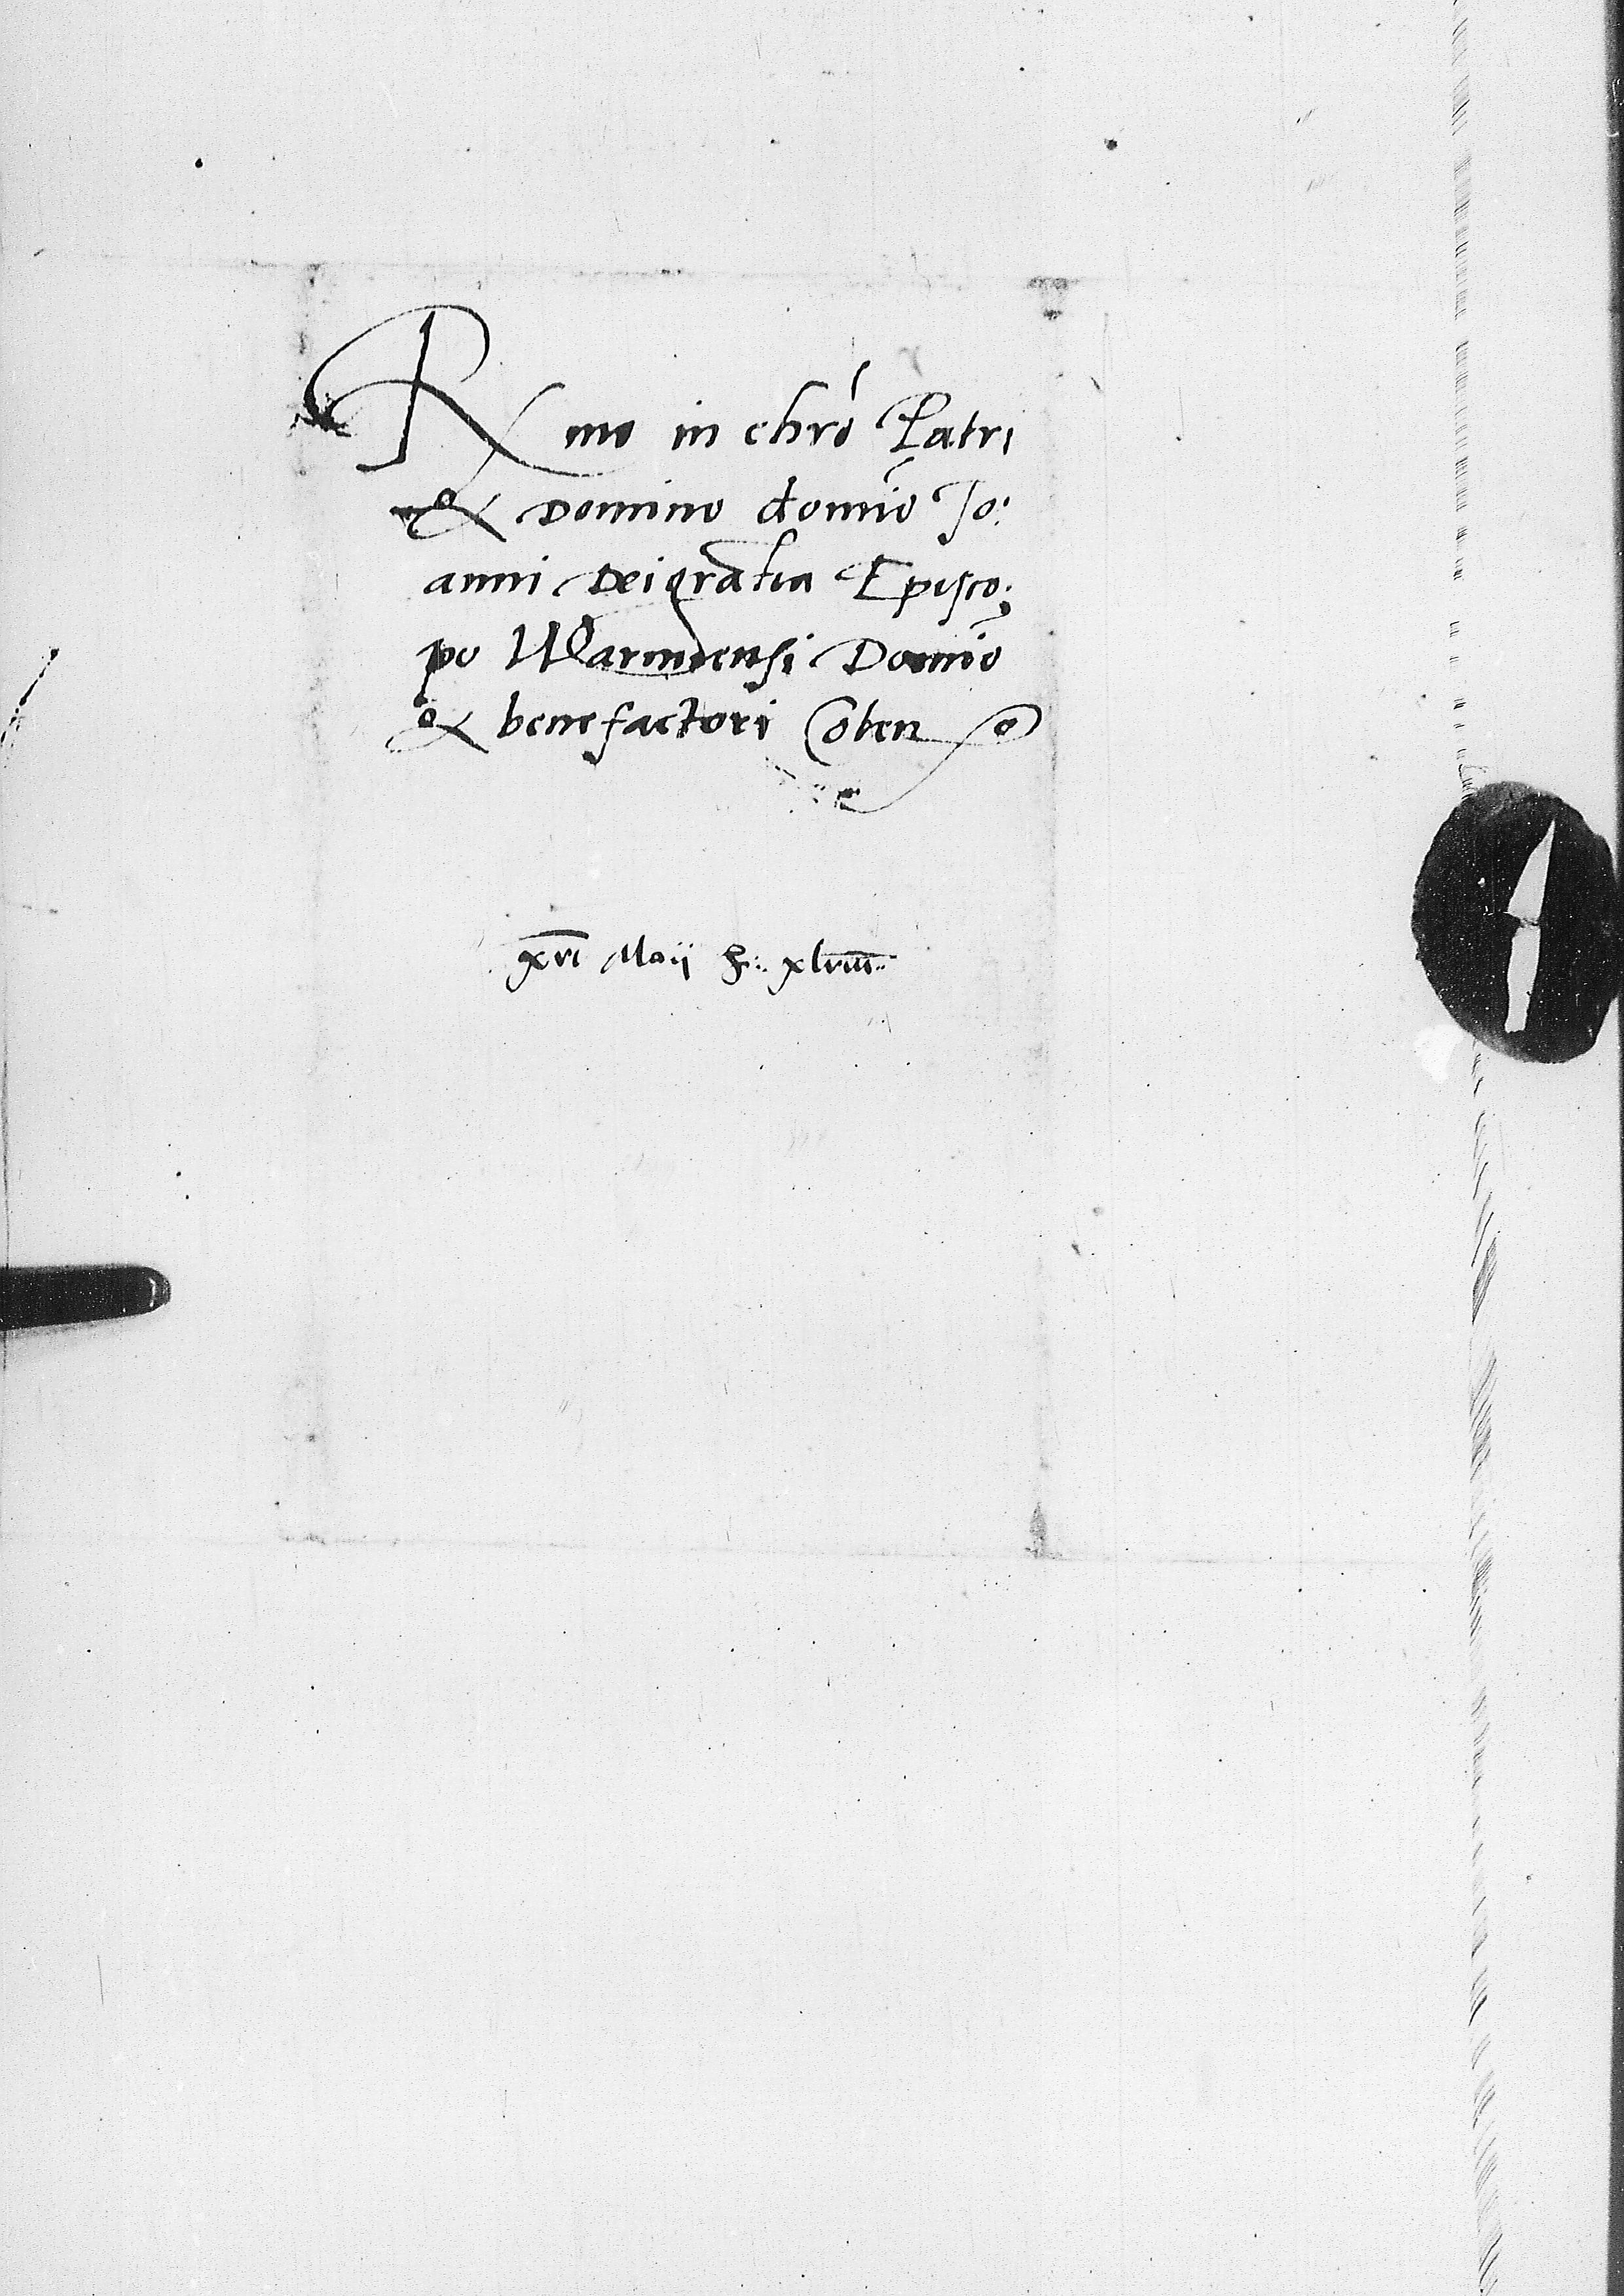 Rmo in chrõ Patri
& Domino domĩo Jo:
anni Dei gratia Episco:
po Warmiensi Domĩo
& benefactori Coleñ
xvi Maij xlviii